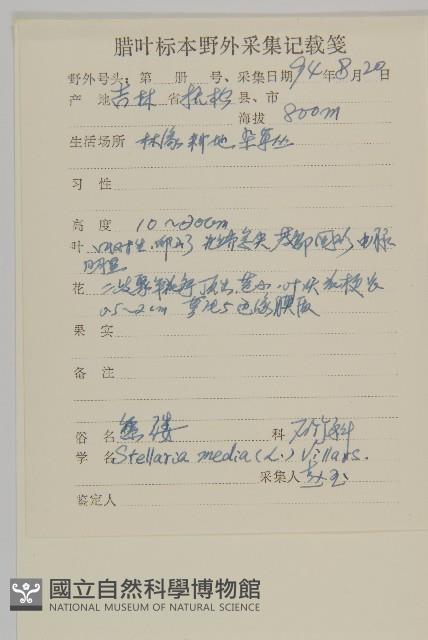 腊叶标本野外采集记载笺
野外号头: 第 册 号、采集日期 94 年 8 月 20 日
产 地 吉林 省 抚松 县、市
海拔 800m
生活场所 林缘 耕地 杂草丛
习 性
高 度 10～20cm
叶 叶对生 卵形 先端急尖 基部圆形 中脉
明显
花 二歧聚伞花序 顶生 苞小 叶状 花梗长
0.5～2cm 萼片5 边缘膜质
果 实
备 注
俗 名 繁缕 科 石竹科
学 名 Stellaria media (L.) Villars.
采集人
鉴定人
國立自然科學博物館
NATIONAL MUSEUM OF NATURAL SCIENCE